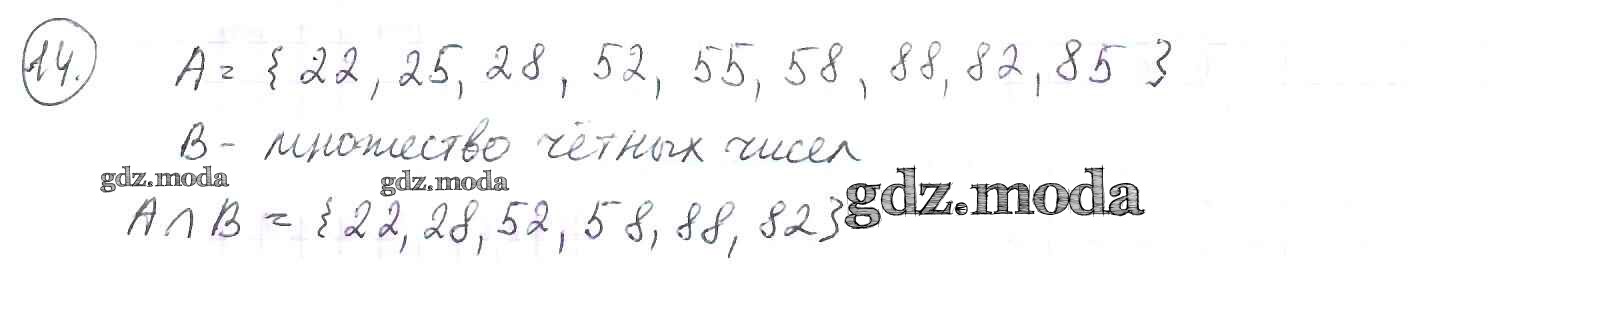 14. A = { 22, 25, 28, 52, 55, 58, 88, 82, 85 }
B - множество чётных чисел
gdz.moda gdz.moda gdz.moda
A ∩ B = {22, 28, 52, 58, 88, 82}